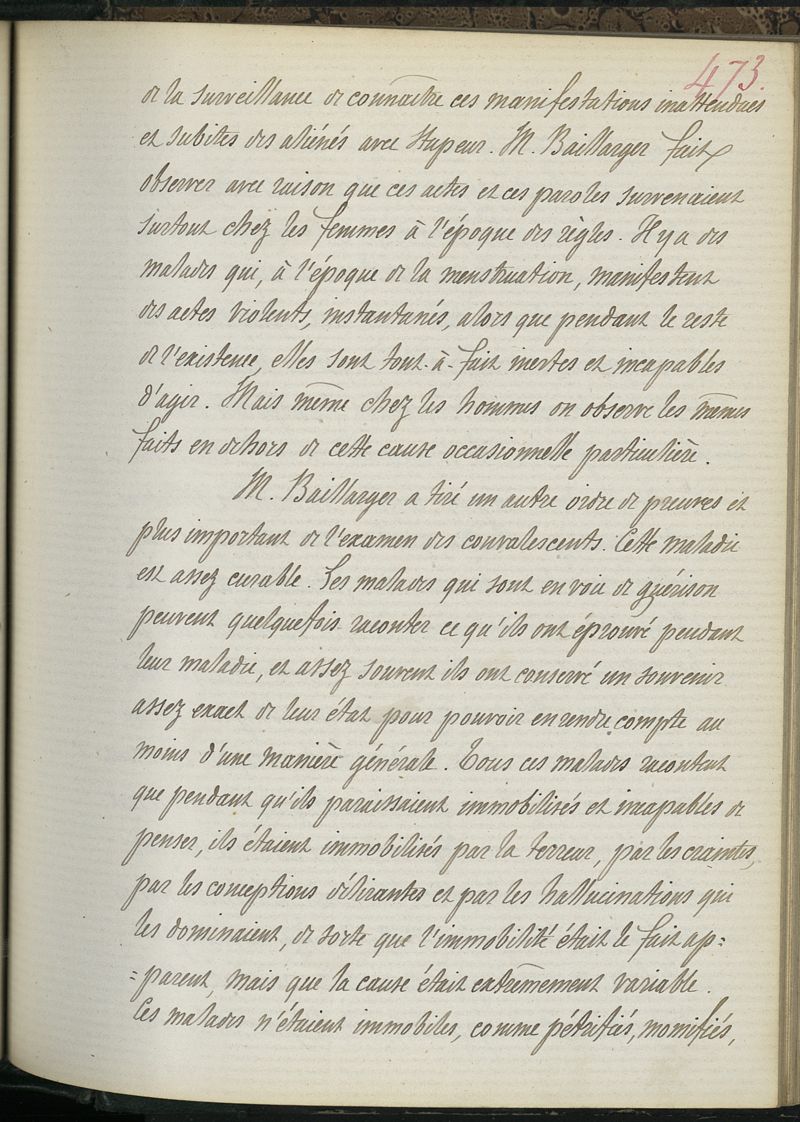 473.
de la surveillance de connaître ces manifestations inattendues
et subites des aliénés avec stupeur. M. Baillarger fait
observer avec raison que ces actes et ces paroles survenaient
surtout chez les femmes à l'époque des règles. Il y a des
malades qui, à l'époque de la menstruation, manifestent
des actes violents, instantanés, alors que pendant le reste
de l'existence, elles sont tout-à-fait inertes et incapables
d'agir. Mais même chez les hommes on observe les mêmes
faits en dehors de cette cause occasionnelle particulière.
M. Baillarger a tiré un autre ordre de preuves et
plus important de l'examen des convalescents. Cette maladie
est assez curable. Les malades qui sont en voie de guérison
peuvent quelquefois raconter ce qu'ils ont éprouvé pendant
leur maladie, et assez souvent ils ont conservé un souvenir
assez exact de leur état pour pouvoir en rendre compte au
moins d'une manière générale. Tous ces malades racontent
que pendant qu'ils paraissaient immobilisés et incapables de
penser, ils étaient immobilisés par la terreur, par les craintes,
par les conceptions délirantes et par les hallucinations qui
les dominaient, de sorte que l'immobilité était le fait ap=
=parent, mais que la cause était extrêmement variable.
Ces malades n'étaient immobiles, comme pétrifiés, momifiés,